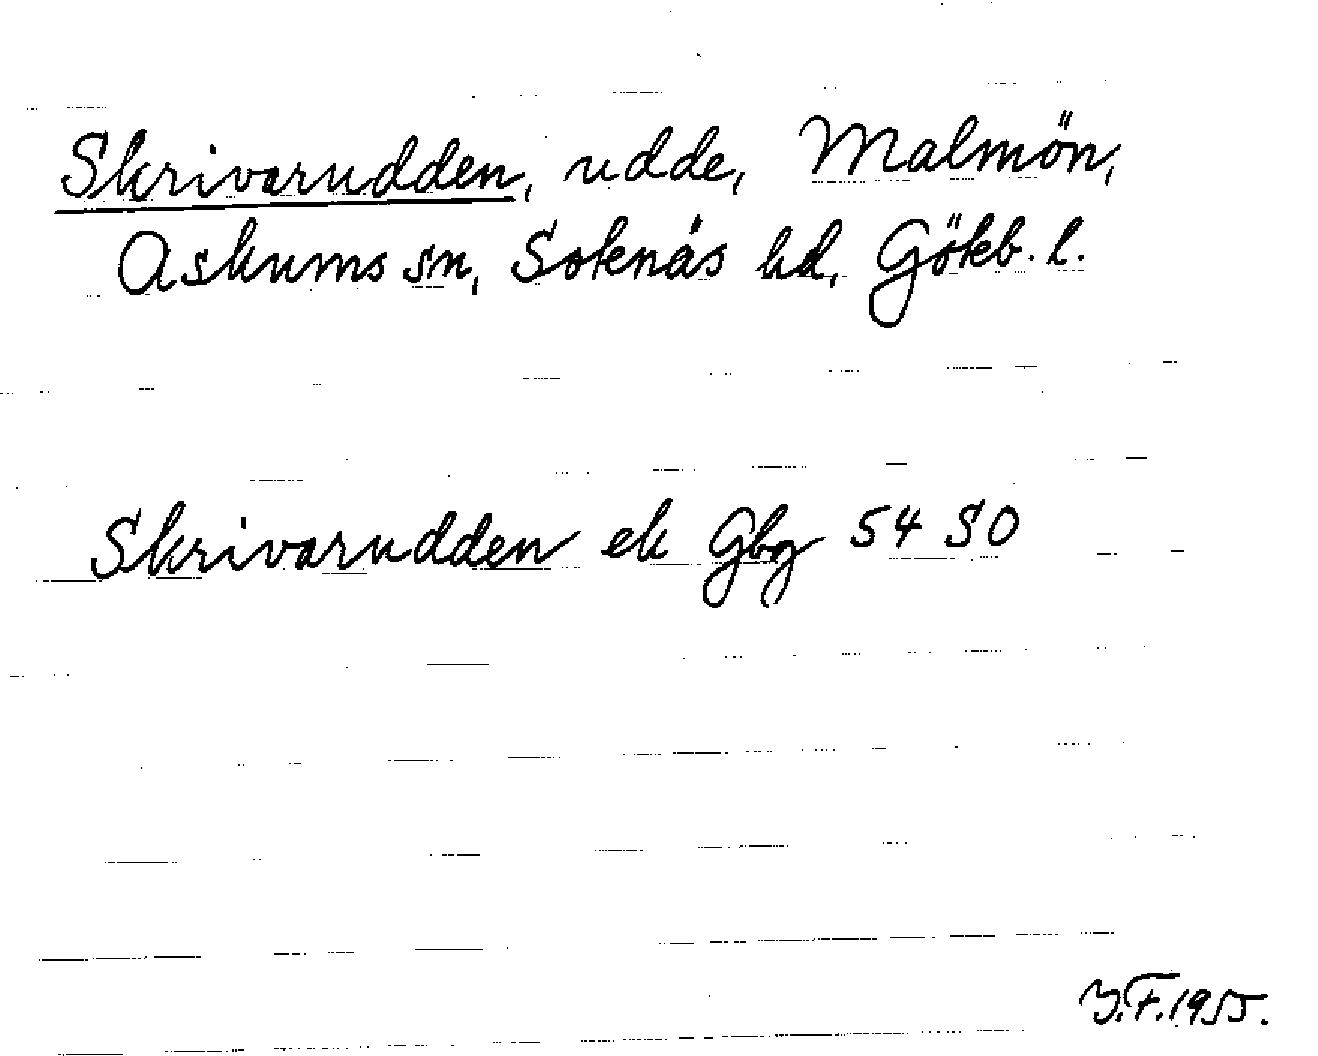 Skrivarudden, udde, Malmön,
Askums sn, Sotenäs hd, Göteb. l.
Skrivarudden ek Gbg 54 SO
Y.F. 1955.